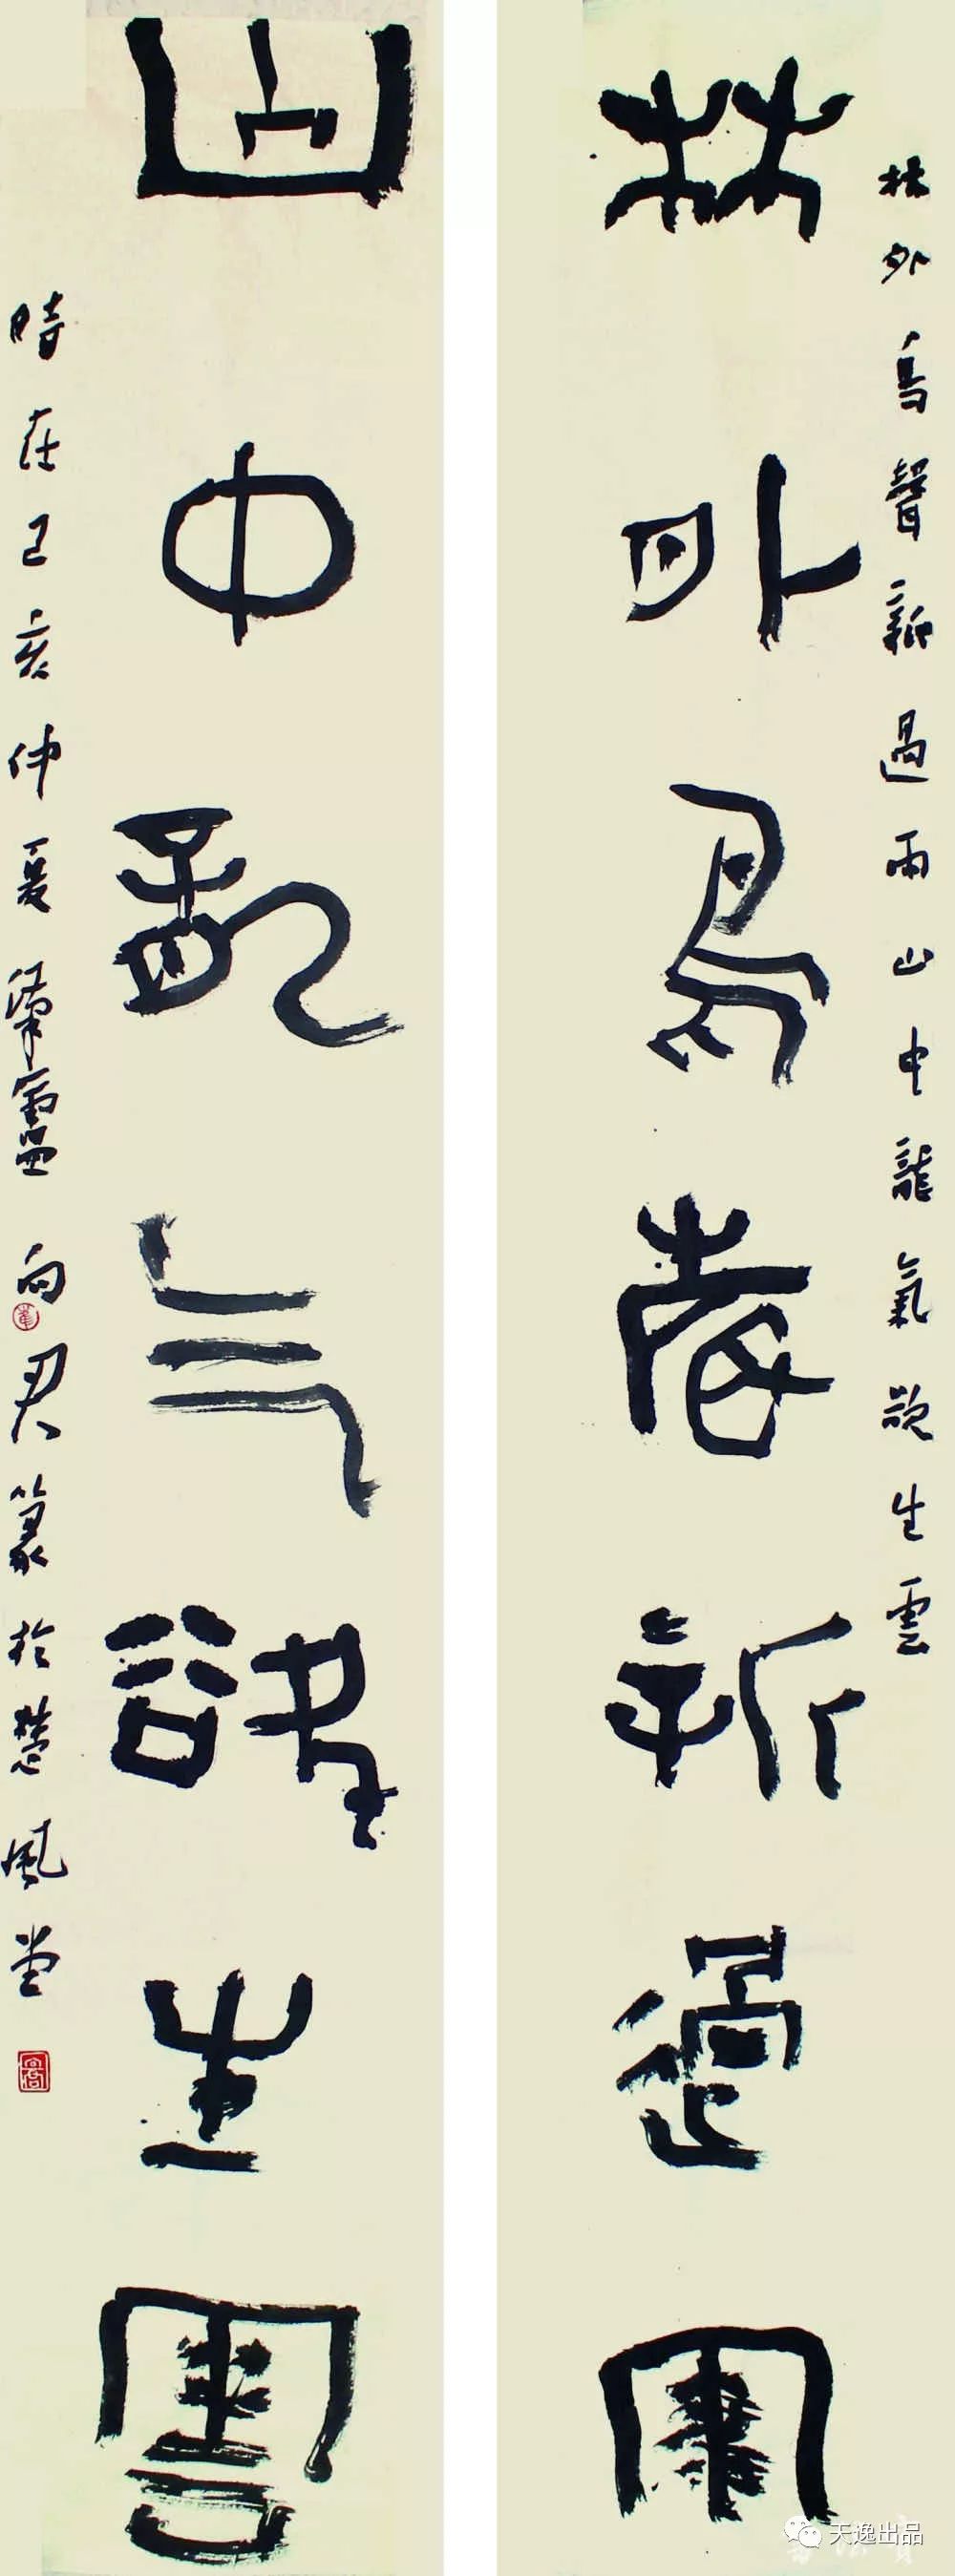 林外鳥聲新過雨山中龍氣欲生雲
林外鳥聲新過雨
山中龍氣欲生雲
時在己亥仲夏 向君篆於楚風堂
天逸出品